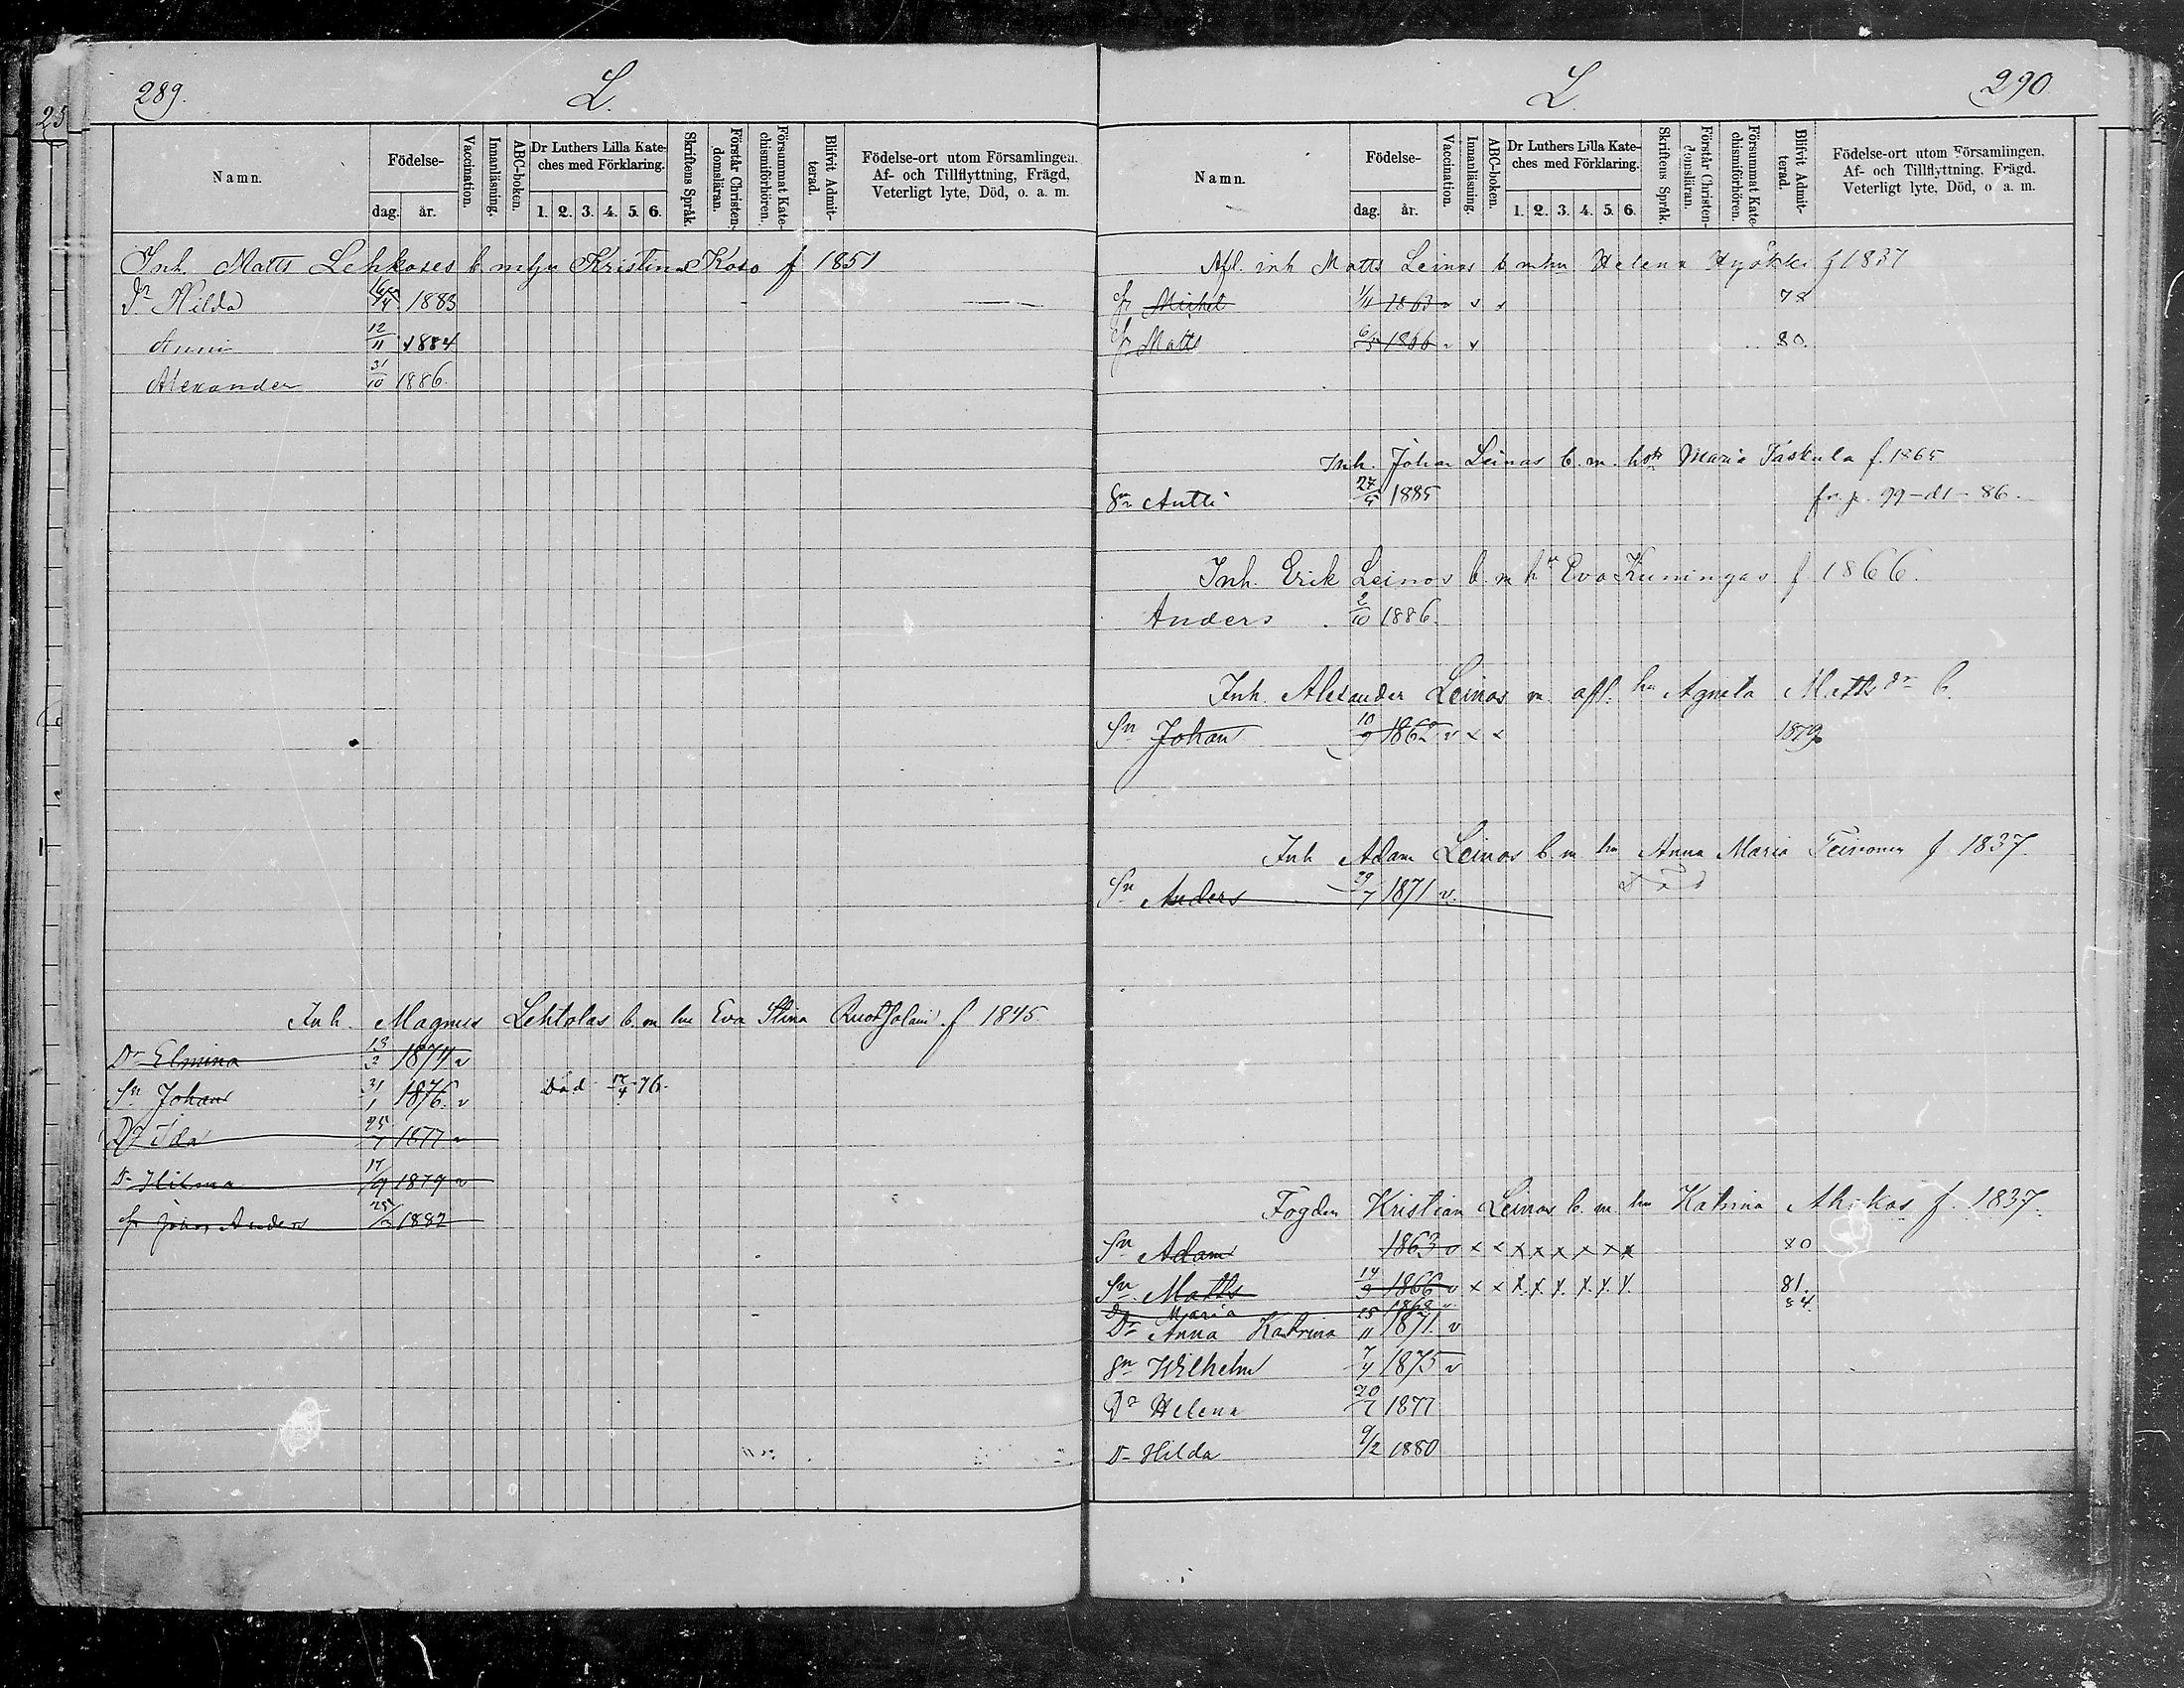 289.
L.
Namn.
Födelse-
dag. år.
Vaccination.
Innanläsning.
ABC-boken.
Dr Luthers Lilla Kate-
ches med Förklaring.
1. 2. 3. 4. 5. 6.
Skriftens Språk.
Förstår Christen-
domsläran.
Försummat Kate-
chismiförhören.
Blifvit Admit-
terad.
Födelse-ort utom Församlingen.
Af- och Tillflyttning, Frägd,
Veterligt lyte, Död, o. a. m.
Inh. Matts Lehkoses b m Kristina Koso f 1851
Dr Hilda 1883
Anni 12/11 1884
Alexander 31/10 1886.
Inh. Magnus Lehtolas b. m. hu Eva Stina f 1845
Dr Elmina 1874 v
Sn Johan 31/1 1876 v Död 17/4 76.
Dr Ida 25/7 1877 v
Dr Hilma 17/9 1879 v
Sn Johan Anders 1882
L.
290
Namn.
Födelse-
dag. år.
Vaccination.
Innanläsning.
ABC-boken.
Dr Luthers Lilla Kate-
ches med Förklaring.
1. 2. 3. 4. 5. 6.
Skriftens Språk.
Förstår Christen-
domsläran.
Försummat Kate-
chismiförhören.
Blifvit Admit-
terad.
Födelse-ort utom Församlingen.
Af- och Tillflyttning, Frägd.
Veterligt lyte, Död, o a. m.
Afl. inh Matts Leinos b m hu Helena Hyökki f 1837
Sn Michel 1863 v v 78
Sn Matts 1866 v 80.
Inh. Johan Leinas b. m. Maria Täskula f. 1865
Sn Antti 27/5 1885 fr. p. 99-81-86.
Inh. Erik Leinos b m hu Eva Kuningas f 1866.
Anders 2/10 1886.
Inh. Alexander Leinos m. afl. hu Agneta Mattsdr b.
Sn Johan 10/9 1862 v x x 1879
Inh Adam Leinos b. m. hu Anna Maria Teinonen f 1837.
Sn Anders 29/7 1871 v. Död
Fogden Kristian Leinos b. m. hu Katrina Ahokas f. 1837.
Sn Adam 1863 v x x x x x x x x 80
Sn Matts 14/3 1866 v x x x x x x x x 81.
Dr Maria 1868 84
Dr Anna Katrina 15/11 1871. v
Sn Wilhelm 7/4 1875 v
Dr Helena 20/7 1877
Dr Hilda 9/2 1880